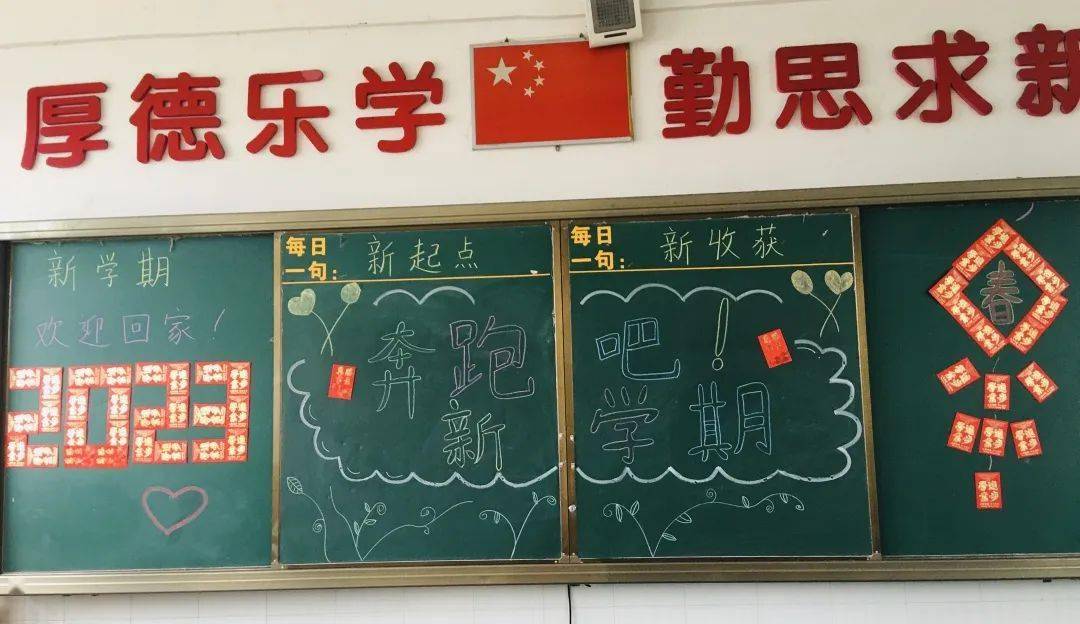 厚德乐学 勤思求新
新学期
欢迎回家！
2023
每日
一句：
新起点
奔跑
新
每日
一句：
新收获
吧！
学期
春